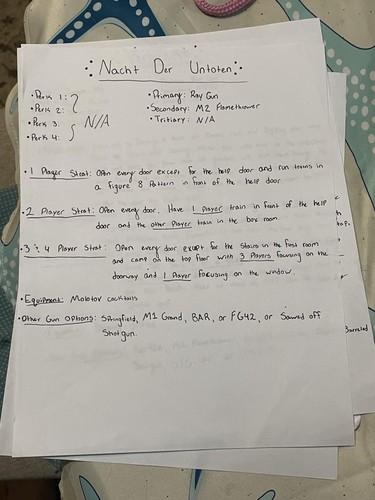 Nacht Der Untoten
• Perk 1:
• Perk 2:
• Perk 3:
• Perk 4:
N/A
• Primary: Ray Gun
• Secondary: M2 Flamethrower
• Tritiary: N/A
• 1 Player Strat: Open every door except for the help door and run trains in
a figure 8 Pattern in front of the help door
• 2 Player Strat: Open every door. Have 1 Player train in front of the help
door and the other Player train in the box room
• 3 & 4 Player Strat: Open every door except for the Stairs in the first room
and camp on the top floor with 3 Players focusing on the
doorway and 1 Player focusing on the window.
• Equipment: Molotov cocktails
• Other Gun Options: Springfield, M1 Grand, BAR, or FG42, or Sawed off
Shotgun.
top.
Barreled